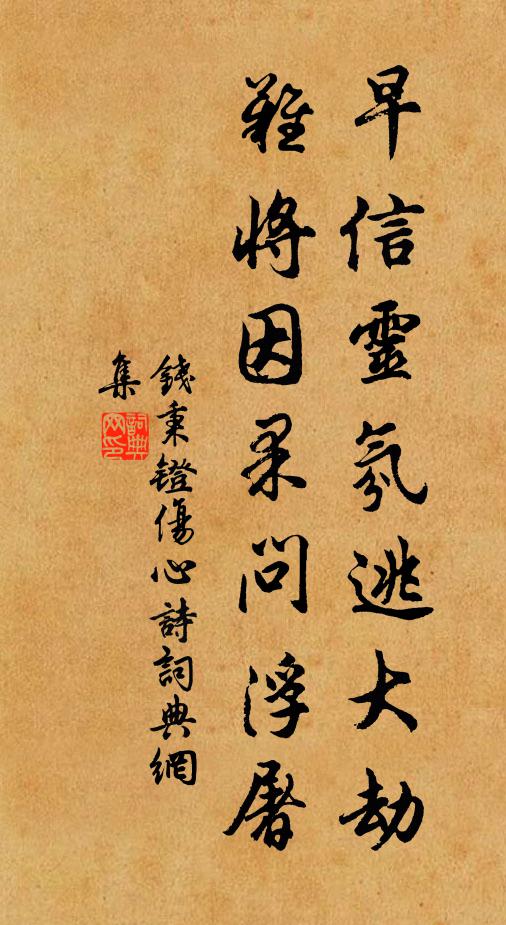 早信靈氛逃大劫
難將因果問浮屠
錢秉鐙傷心詩詞典網
集
詞典
网印